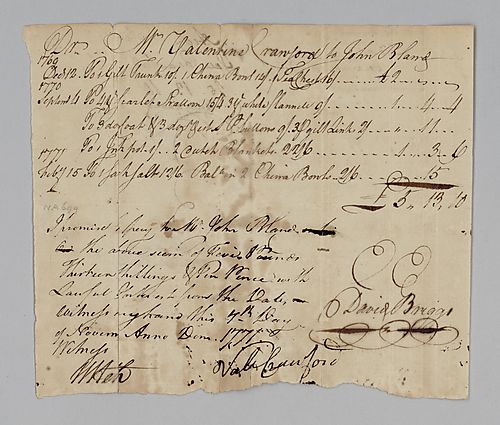 Dr. Mr. Valentine Crawford to John Bland
1769
Decr 12. To 1 Gilt Trunk 10/. 1 China Bowl 14/. 1 Tea Chest 16/ £2
1770
Septemr 4 To Scarlet 15/4 3 yd white flannell 9/. 1 4 4
To 3 doz Coat & 3 doz Buttons 9/. 3 pr gilt Link 2/ 11
1771 To 1 2 Dutch Blankets 22/6 1 3 6
Feby 15 To 1 Sack Salt 12/6. Bale on 2 China Bowls 2/6 15
£5, 13, 10
I promise to pay to Mr. John Bland
the above sum of Five Pounds
Thirteen Shillings & Ten Pence with
Lawful Interest from the Date,
Witness my hand this 7th Day
of Novem Anno Dom. 177
Witness
Val Crawford
David Briggs